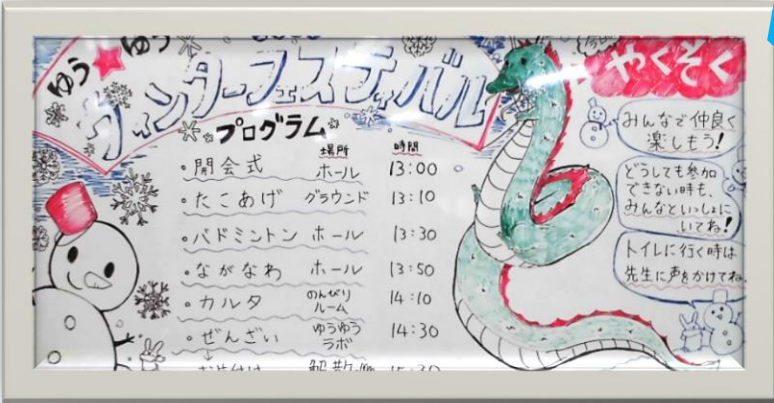 ゆう★ゆう
ウィンターフェスティバル
プログラム
場所 時間
・開会式 ホール 13:00
・たこあげ グラウンド 13:10
・バドミントン ホール 13:30
・ながなわ ホール 13:50
・カルタ のんびりルーム 14:10
・ぜんざい ゆうゆうラボ 14:30
やくそく
みんなで仲良く
楽しもう!
どうしても参加
できない時も、
みんなといっしょに
いてね!
トイレに行く時は
先生に声をかけてね